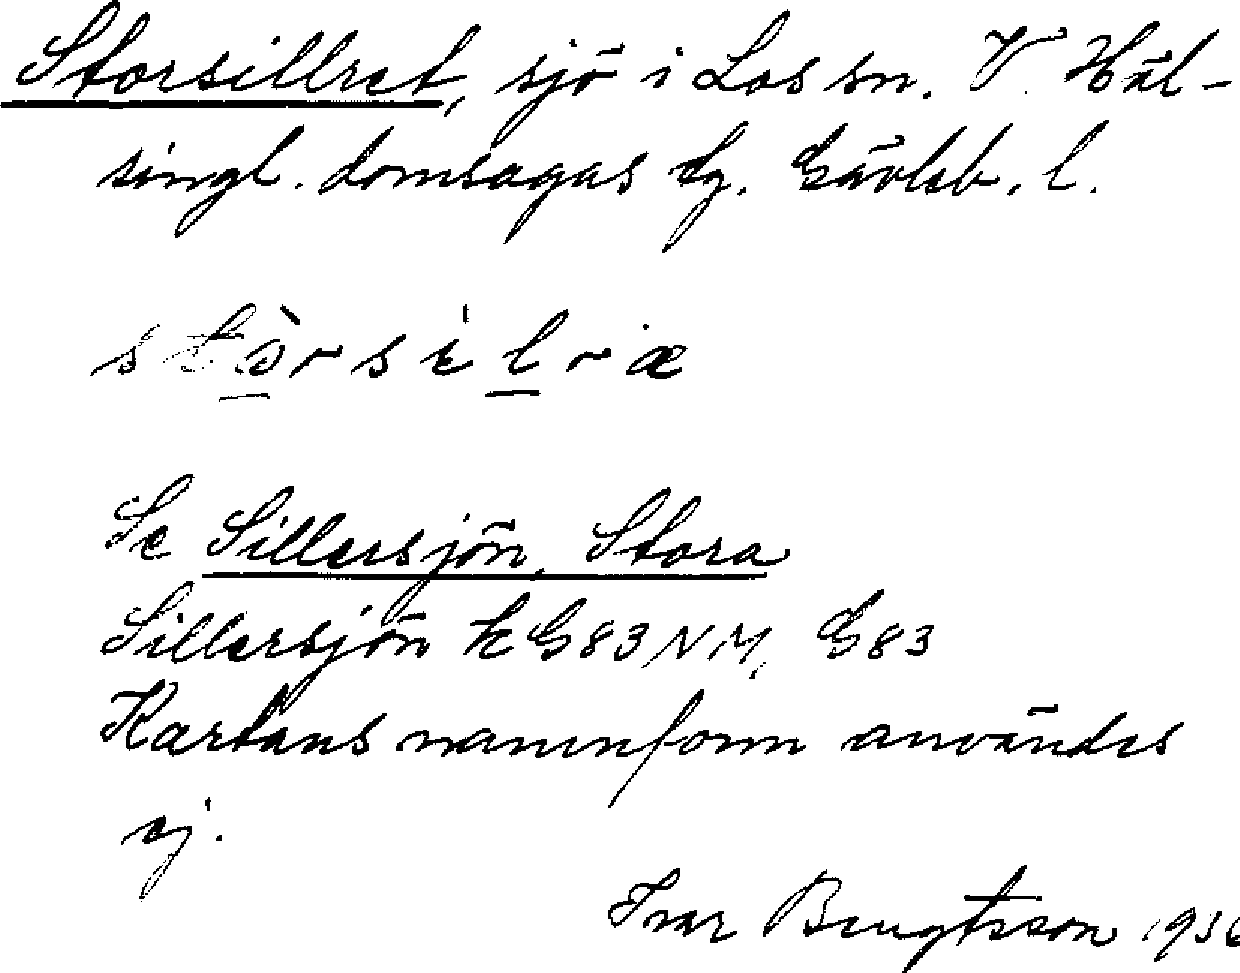 Storsillret, sjö i Los sn. V. Häl-
singl. domsagas tg. Gävleb. l.
Se Sillersjön, Stora
Sillersjön k G83 NM, G83
Kartans namnform användes
ej.
Ivar Bengtsson 193